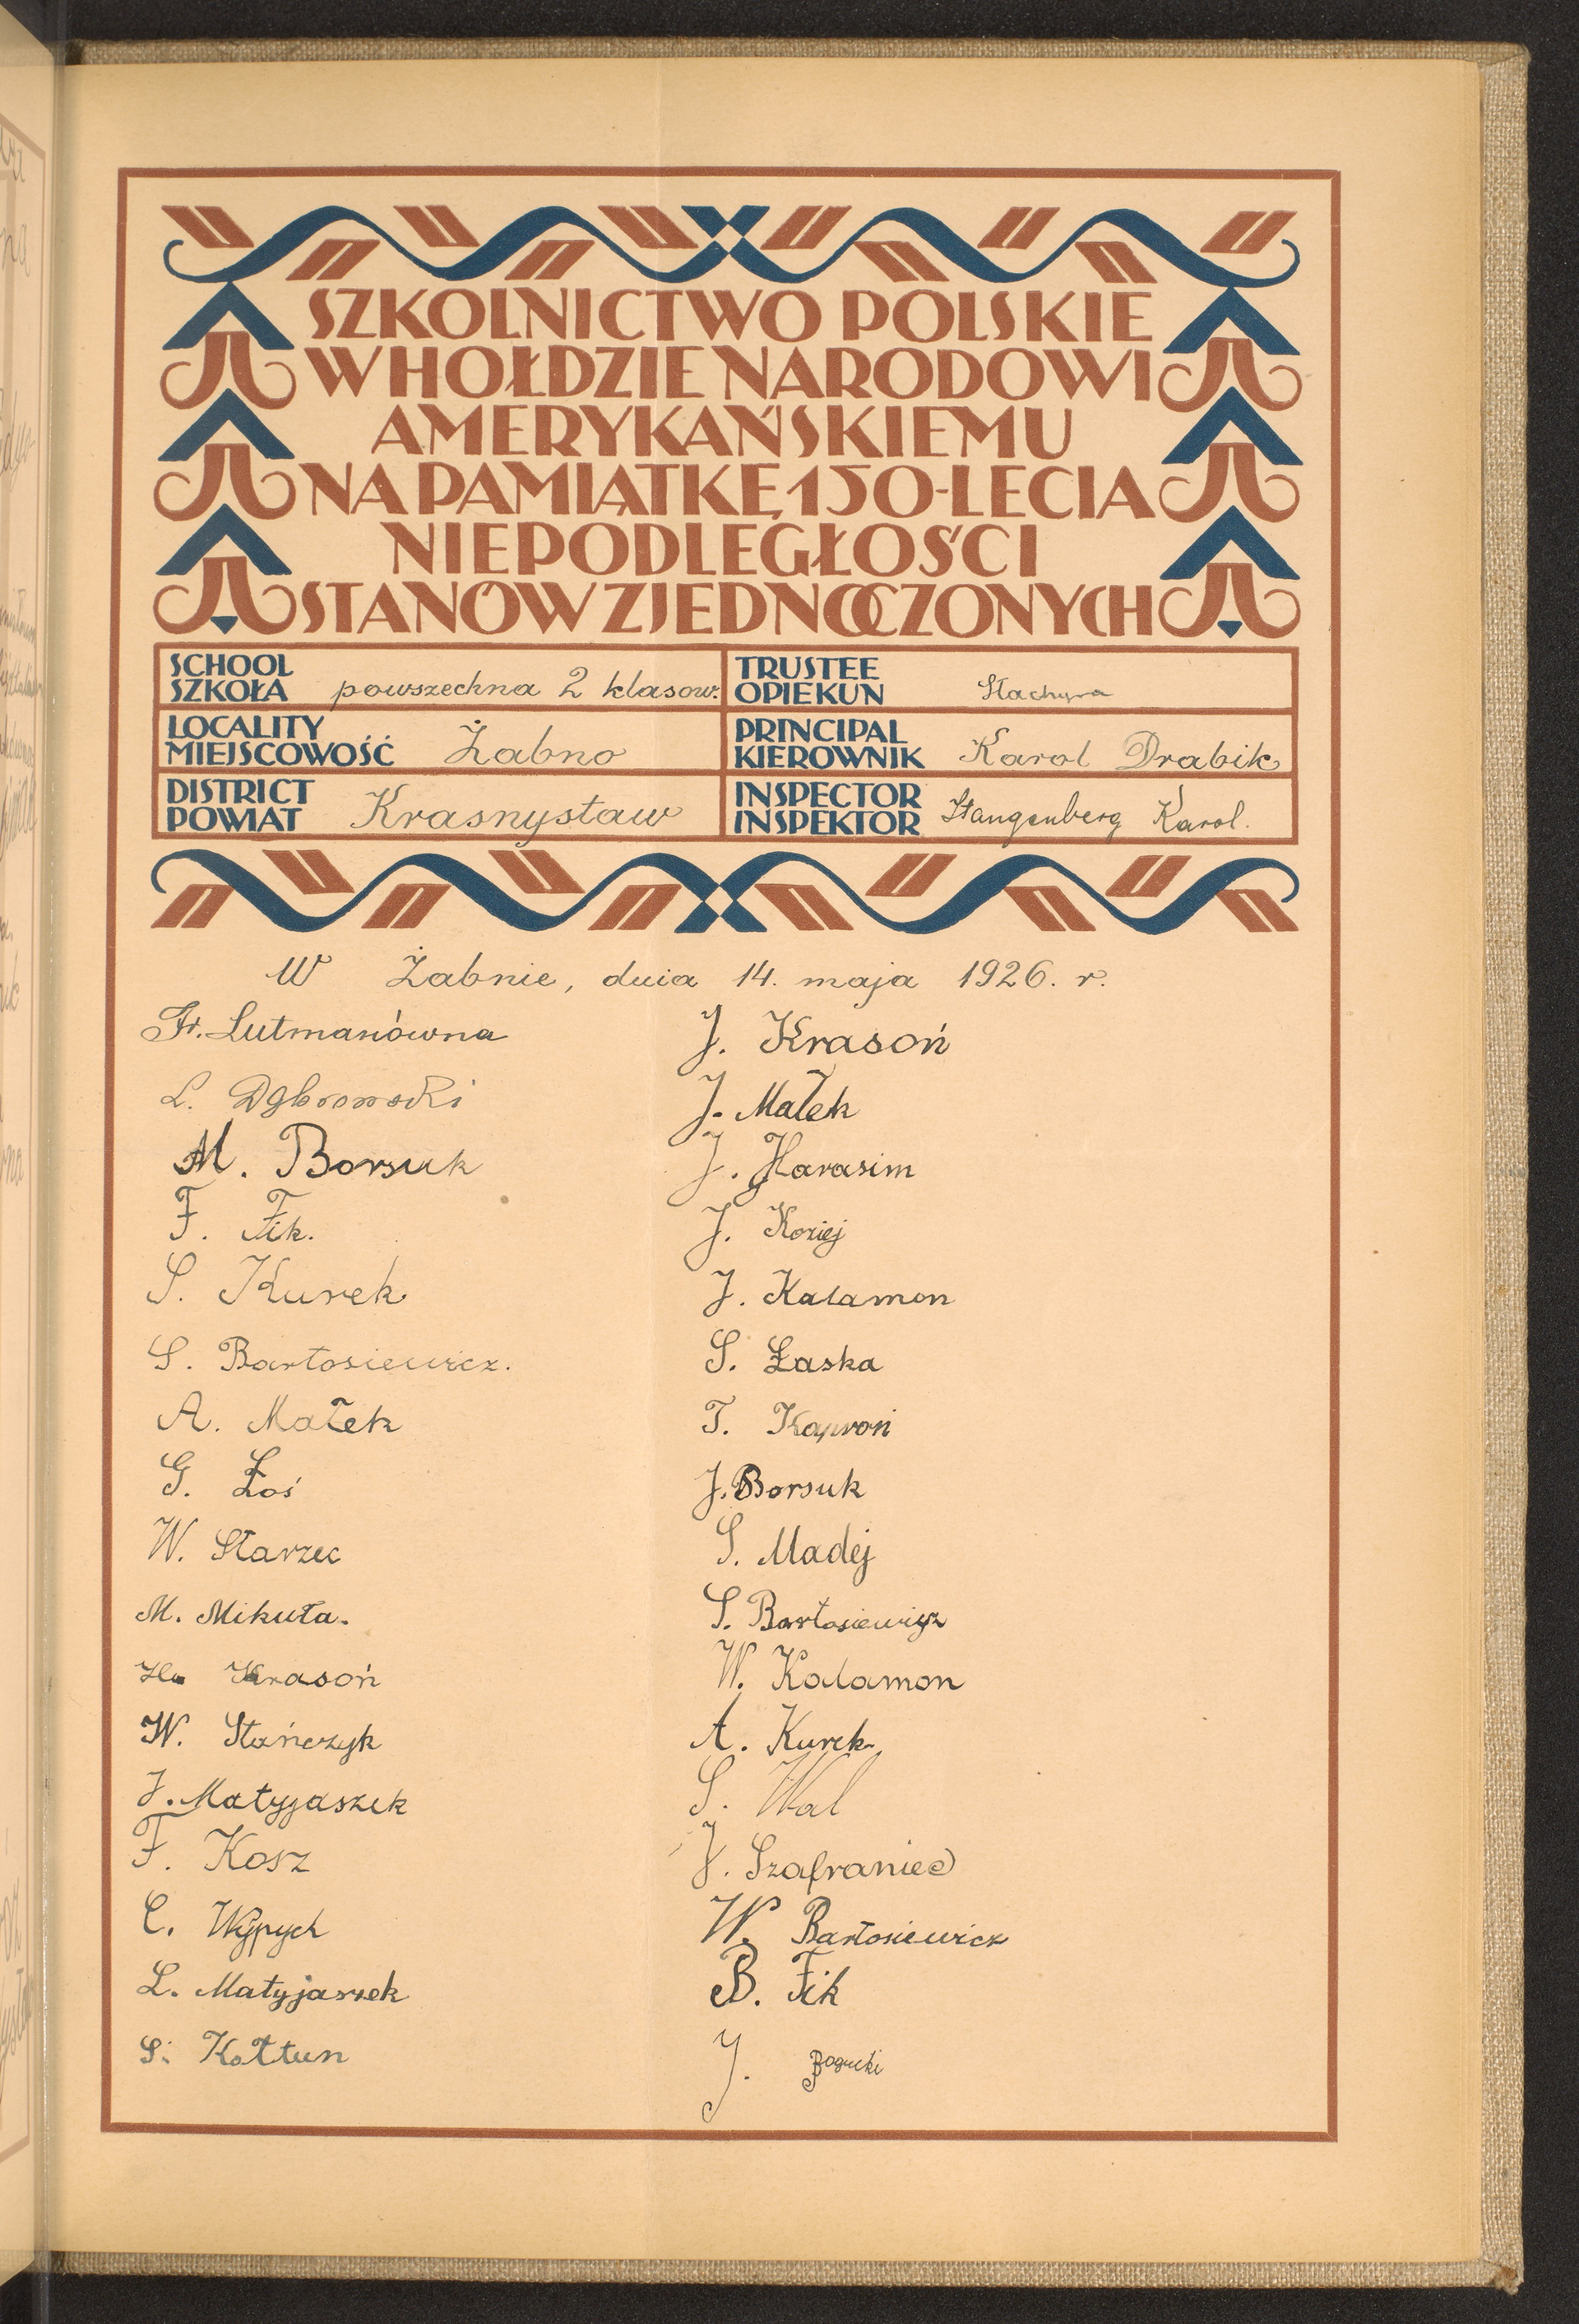 SZKOLNICTWO POLSKIE
W HOŁDZIE NARODOWI
AMERYKAŃSKIEMU
NA PAMIĄTKĘ 150-LECIA
NIEPODLEGŁOŚCI
STANÓW ZJEDNOCZONYCH
SCHOOL
SZKOŁA powszechna 2 klasow.
TRUSTEE
OPIEKUN Stachyra
LOCALITY
MIEJSCOWOŚĆ Żabno
PRINCIPAL
KIEROWNIK Karol Drabik
DISTRICT
POWIAT Krasnystaw
INSPECTOR
INSPEKTOR Stangenberg Karol.
W Żabnie, dnia 14. maja 1926. r.
Fr. Lutmanówna
L. Dąbrowski
M. Borsuk
F. Fik.
S. Kurek
S. Bartosiewicz.
A. Małek
G. Łoś
W. Starzec
M. Mikuła.
Krasoń
W. Stańczyk
J. Matyjaszek
F. Kosz
C. Wypych
L. Matyjaszek
S. Kołtun
J. Krasoń
J. Małek
J. Harasim
J. Koziej
J. Kalamon
S. Łaska
T. Kaproń
J. Borsuk
S. Madej
S. Bartosiewicz
W. Kalamon
A. Kurek
S. Wal
J. Szafraniec
W. Bartosiewicz
B. Fik
J. Bogucki